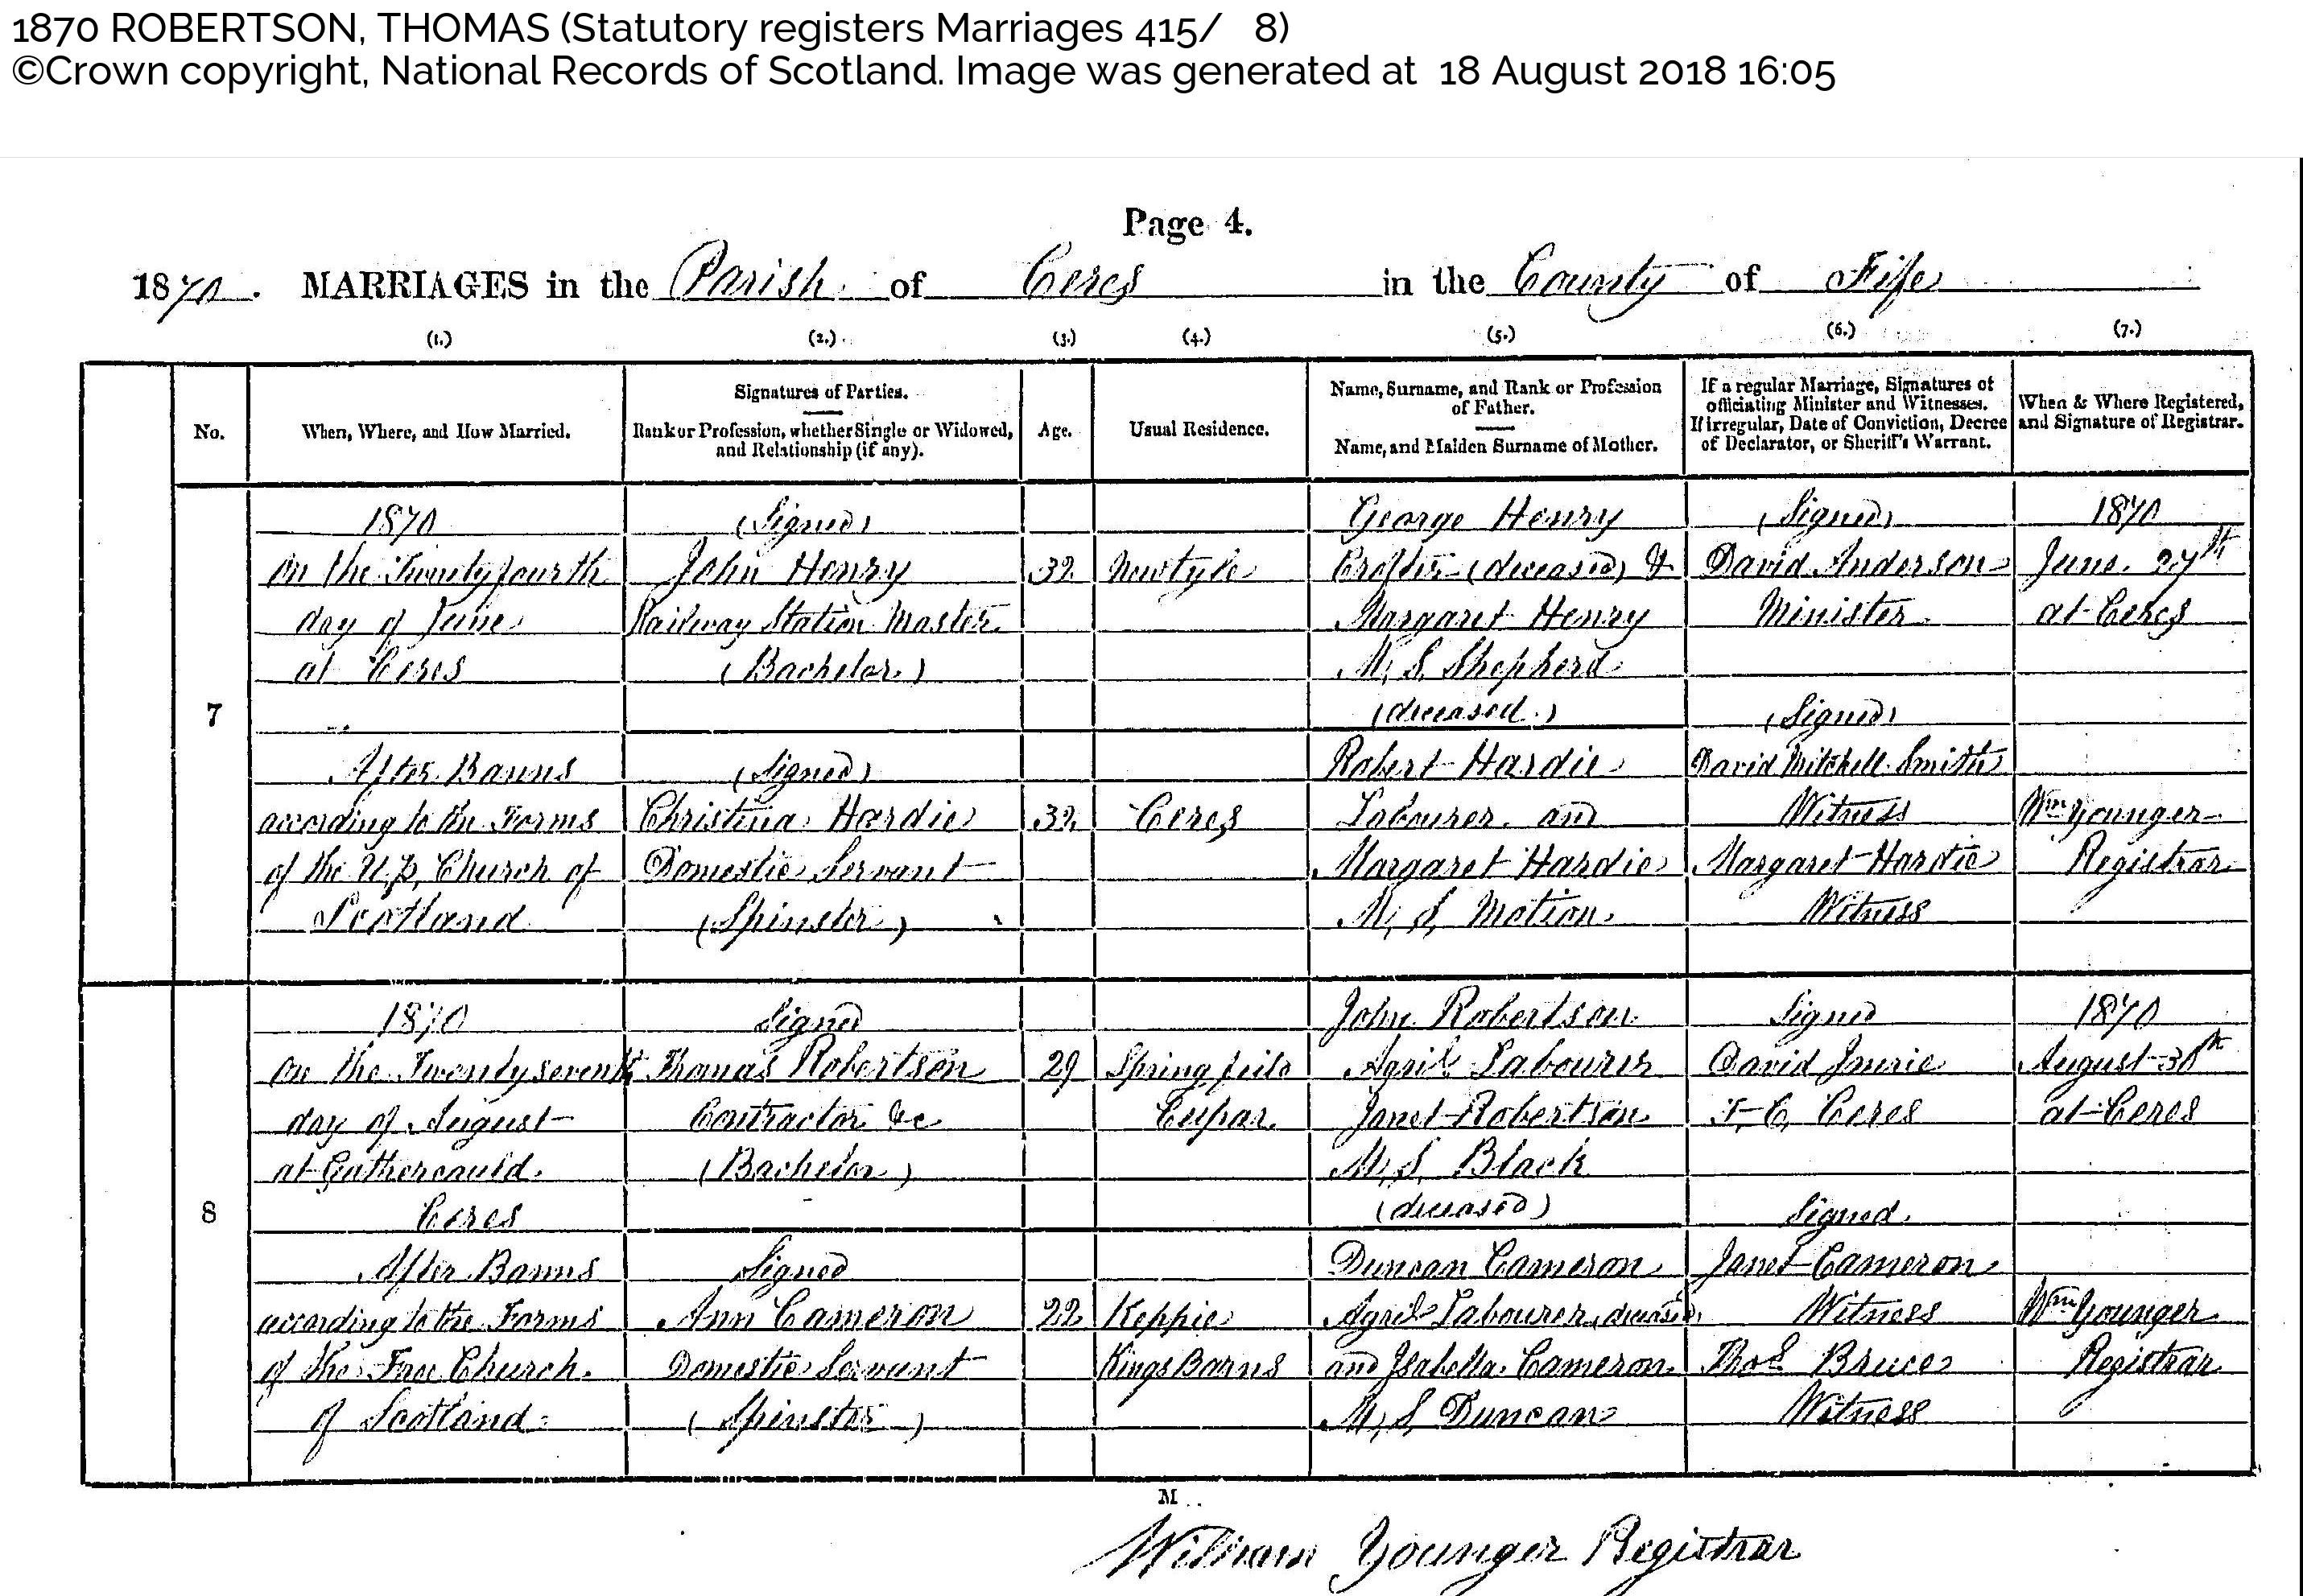 1870 ROBERTSON, THOMAS (Statutory registers Marriages 415/ 8)
©Crown copyright, National Records of Scotland. Image was generated at 18 August 2018 16:05
Page 4.
1870. MARRIAGES in the Parish of Ceres in the County of Fife
(1.) (2.) (3.) (4.) (5.) (6.) (7.)
No.
When, Where, and How Married.
Signatures of Parties.
Rank or Profession, whether Single or Widowed,
and Relationship (if any).
Age.
Usual Residence.
Name, Surname, and Rank or Profession
of Father.
Name, and Maiden Surname of Mother.
If a regular Marriage, Signatures of
officiating Minister and Witnesses.
If irregular, Date of Conviction, Decree
of Declarator, or Sheriff's Warrant.
When & Where Registered,
and Signature of Registrar.
7
1870
on the Twenty fourth
day of June
at Ceres
After Banns
according to the Forms
of the U.P. Church of
Scotland
(Signed)
John Henry
Railway Station Master
(Bachelor)
(Signed)
Christina Hardie
Domestic Servant
(Spinster)
32
32
Newtyle
Ceres
George Henry
Crofter (deceased) &
Margaret Henry
M, S, Shepherd
(deceased.)
Robert Hardie
Labourer and
Margaret Hardie
M, S, Motion
(Signed)
David Anderson
Minister
(Signed)
David Mitchell Smith
Witness
Margaret Hardie
Witness
1870
June 27th
at Ceres
Wm Younger
Registrar
8
1870
on the Twenty seventh
day of August
at Gathercauld
Ceres
After Banns
according to the Forms
of the Free Church
of Scotland
Signed
Thomas Robertson
Contractor &c
(Bachelor)
Signed
Ann Cameron
Domestic Servant
(Spinster)
29
22
Springfield
Cupar
Keppie
Kings Barns
John Robertson
Agril Labourer
Janet Robertson
M, S, Black
(deceased)
Duncan Cameron
Agril Labourer, deceased,
and Isabella Cameron
M, S, Duncan
Signed
David
F, C, Ceres
Signed
Janet Cameron
Witness
Thos Bruce
Witness
1870
August 30th
at Ceres
Wm Younger
Registrar
M
William Younger Registrar